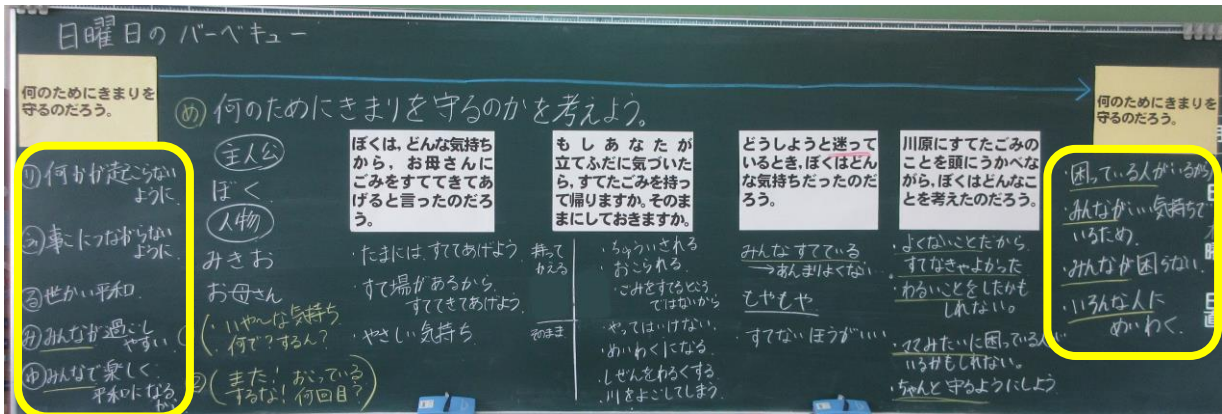 日曜日のバーベキュー
何のためにきまりを
守るのだろう。
め 何のためにきまりを守るのかを考えよう。
り 何かが起こらない
ように
事こにつながらない
ように
る 世かい平和
み みんなが過ごし
やすい
ゆ みんなで楽しく
平和になる
主人公
ぼく
人物
みきお
お母さん
いや〜な気持ち
何で?するん?
また!おこっている
するな!何回目?
ぼくは、どんな気持ち
から、お母さんに
ごみをすててきてあ
げると言ったのだろ
う。
・たまには、すててあげよう
・すて場があるから、
すててきてあげよう
・やさしい気持ち
もしあなたが
立てふだに気づいた
ら、すてたごみを持っ
て帰りますか。そのま
まにしておきますか。
持って
かえる
・ちゅういされる
・おこられる
・ごみをすてるところ
ではないから
そのまま
・やってはいけない。
・めいわくになる
・しぜんをわるくする
・川をよごしてしまう。
どうしようと迷って
いるとき、ぼくはどん
な気持ちだったのだ
ろう。
みんなすてている
→あんまりよくない
もやもや
すてないほうがいい
川原にすてたごみの
ことを頭にうかべな
がら、ぼくはどんなこ
とを考えたのだろう。
・よくないことだから、
すてなきゃよかった
・わるいことをしたかも
しれない。
みたいに困っている人が
いるかもしれない。
・ちゃんと守るようにしよう
何のためにきまりを
守るのだろう。
・困っている人がいるから
・みんながいい気持ちで
いるため。
・みんなが困らない
・いろんな人に
めいわく
日
曜
日直